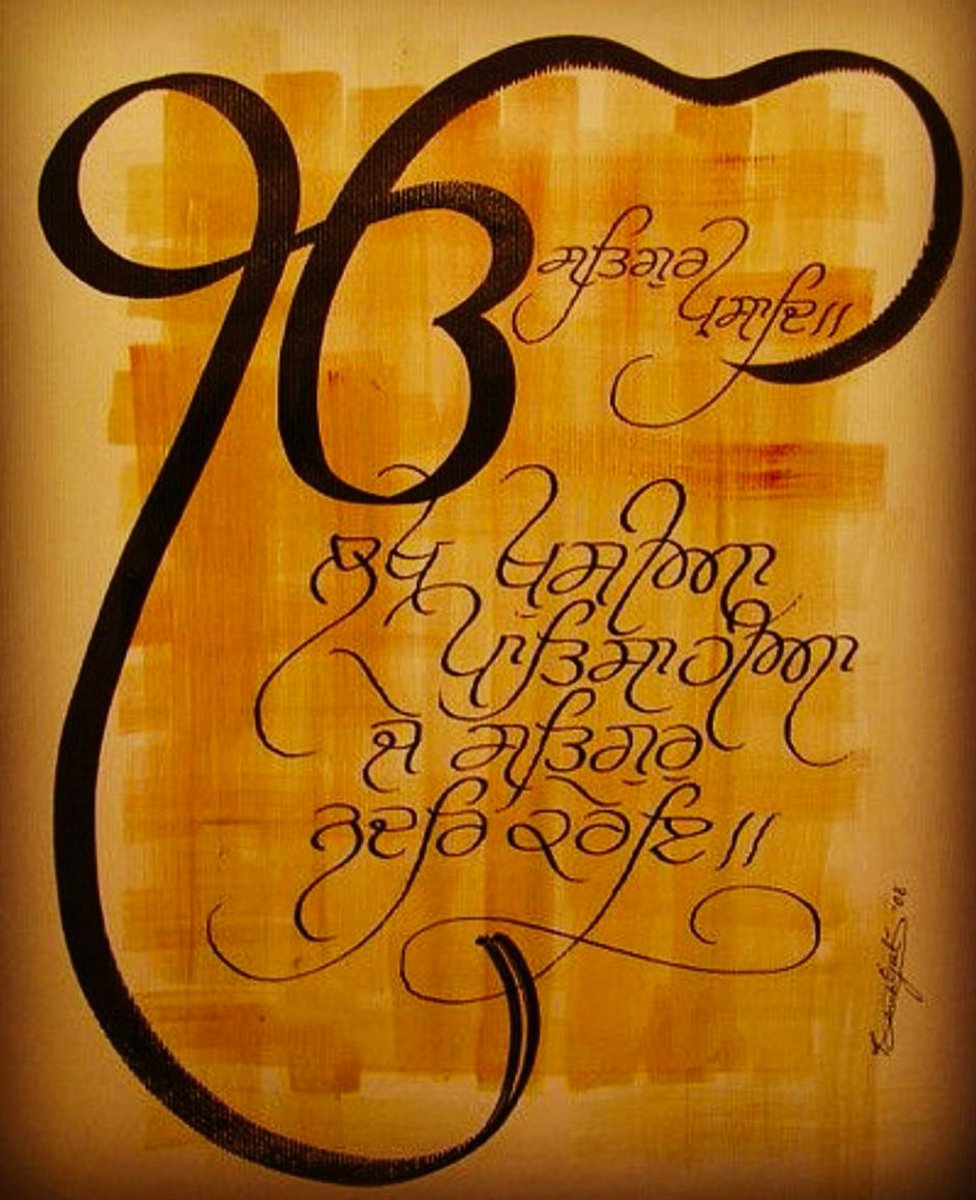 ੴ ਸਤਿਗੁਰ
ਪ੍ਰਸਾਦਿ॥
ਲਖ ਖੁਸੀਆ
ਪਾਤਿਸਾਹੀਆ
ਜੇ ਸਤਿਗੁਰੁ
ਨਦਰਿ ਕਰੇਇ॥
'08